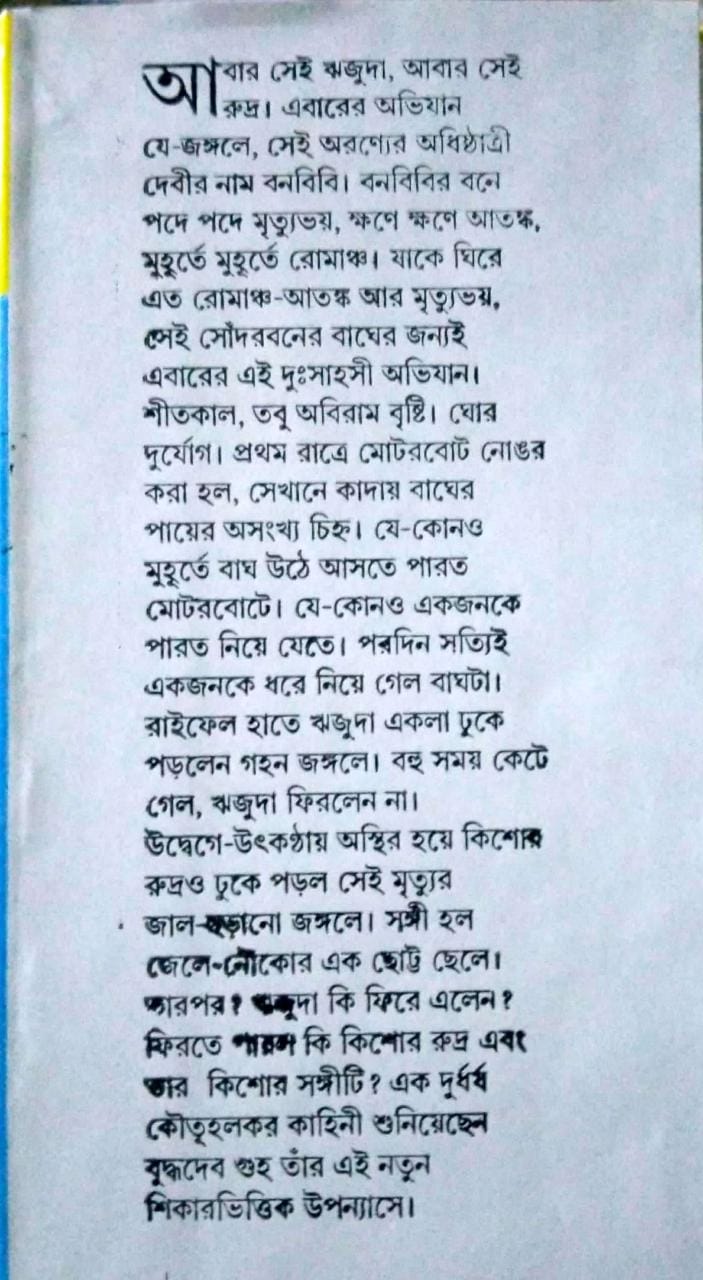 আবার সেই ঋজুদা, আবার সেই
রুদ্র। এবারের অভিযান
যে-জঙ্গলে, সেই অরণ্যের অধিষ্ঠাত্রী
দেবীর নাম বনবিবি। বনবিবির বনে
পদে পদে মৃত্যুভয়, ক্ষণে ক্ষণে আতঙ্ক,
মুহূর্তে মুহূর্তে রোমাঞ্চ। যাকে ঘিরে
এত রোমাঞ্চ-আতঙ্ক আর মৃত্যুভয়,
সেই সোঁদরবনের বাঘের জন্যই
এবারের এই দুঃসাহসী অভিযান।
শীতকাল, তবু অবিরাম বৃষ্টি। ঘোর
দুর্যোগ। প্রথম রাত্রে মোটরবোট নোঙর
করা হল, সেখানে কাদায় বাঘের
পায়ের অসংখ্য চিহ্ন। যে-কোনও
মুহূর্তে বাঘ উঠে আসতে পারত
মোটরবোটে। যে-কোনও একজনকে
পারত নিয়ে যেতে। পরদিন সত্যিই
একজনকে ধরে নিয়ে গেল বাঘটা।
রাইফেল হাতে ঋজুদা একলা ঢুকে
পড়লেন গহন জঙ্গলে। বহু সময় কেটে
গেল, ঋজুদা ফিরলেন না।
উদ্বেগে-উৎকণ্ঠায় অস্থির হয়ে কিশোর
রুদ্রও ঢুকে পড়ল সেই মৃত্যুর
জাল-ছড়ানো জঙ্গলে। সঙ্গী হল
জেলে-নৌকোর এক ছোট্ট ছেলে।
তারপর? ঋজুদা কি ফিরে এলেন?
ফিরতে পারল কি কিশোর রুদ্র এবং
তার কিশোর সঙ্গীটি? এক দুর্ধর্ষ
কৌতূহলকর কাহিনী শুনিয়েছেন
বুদ্ধদেব গুহ তাঁর এই নতুন
শিকারভিত্তিক উপন্যাসে।